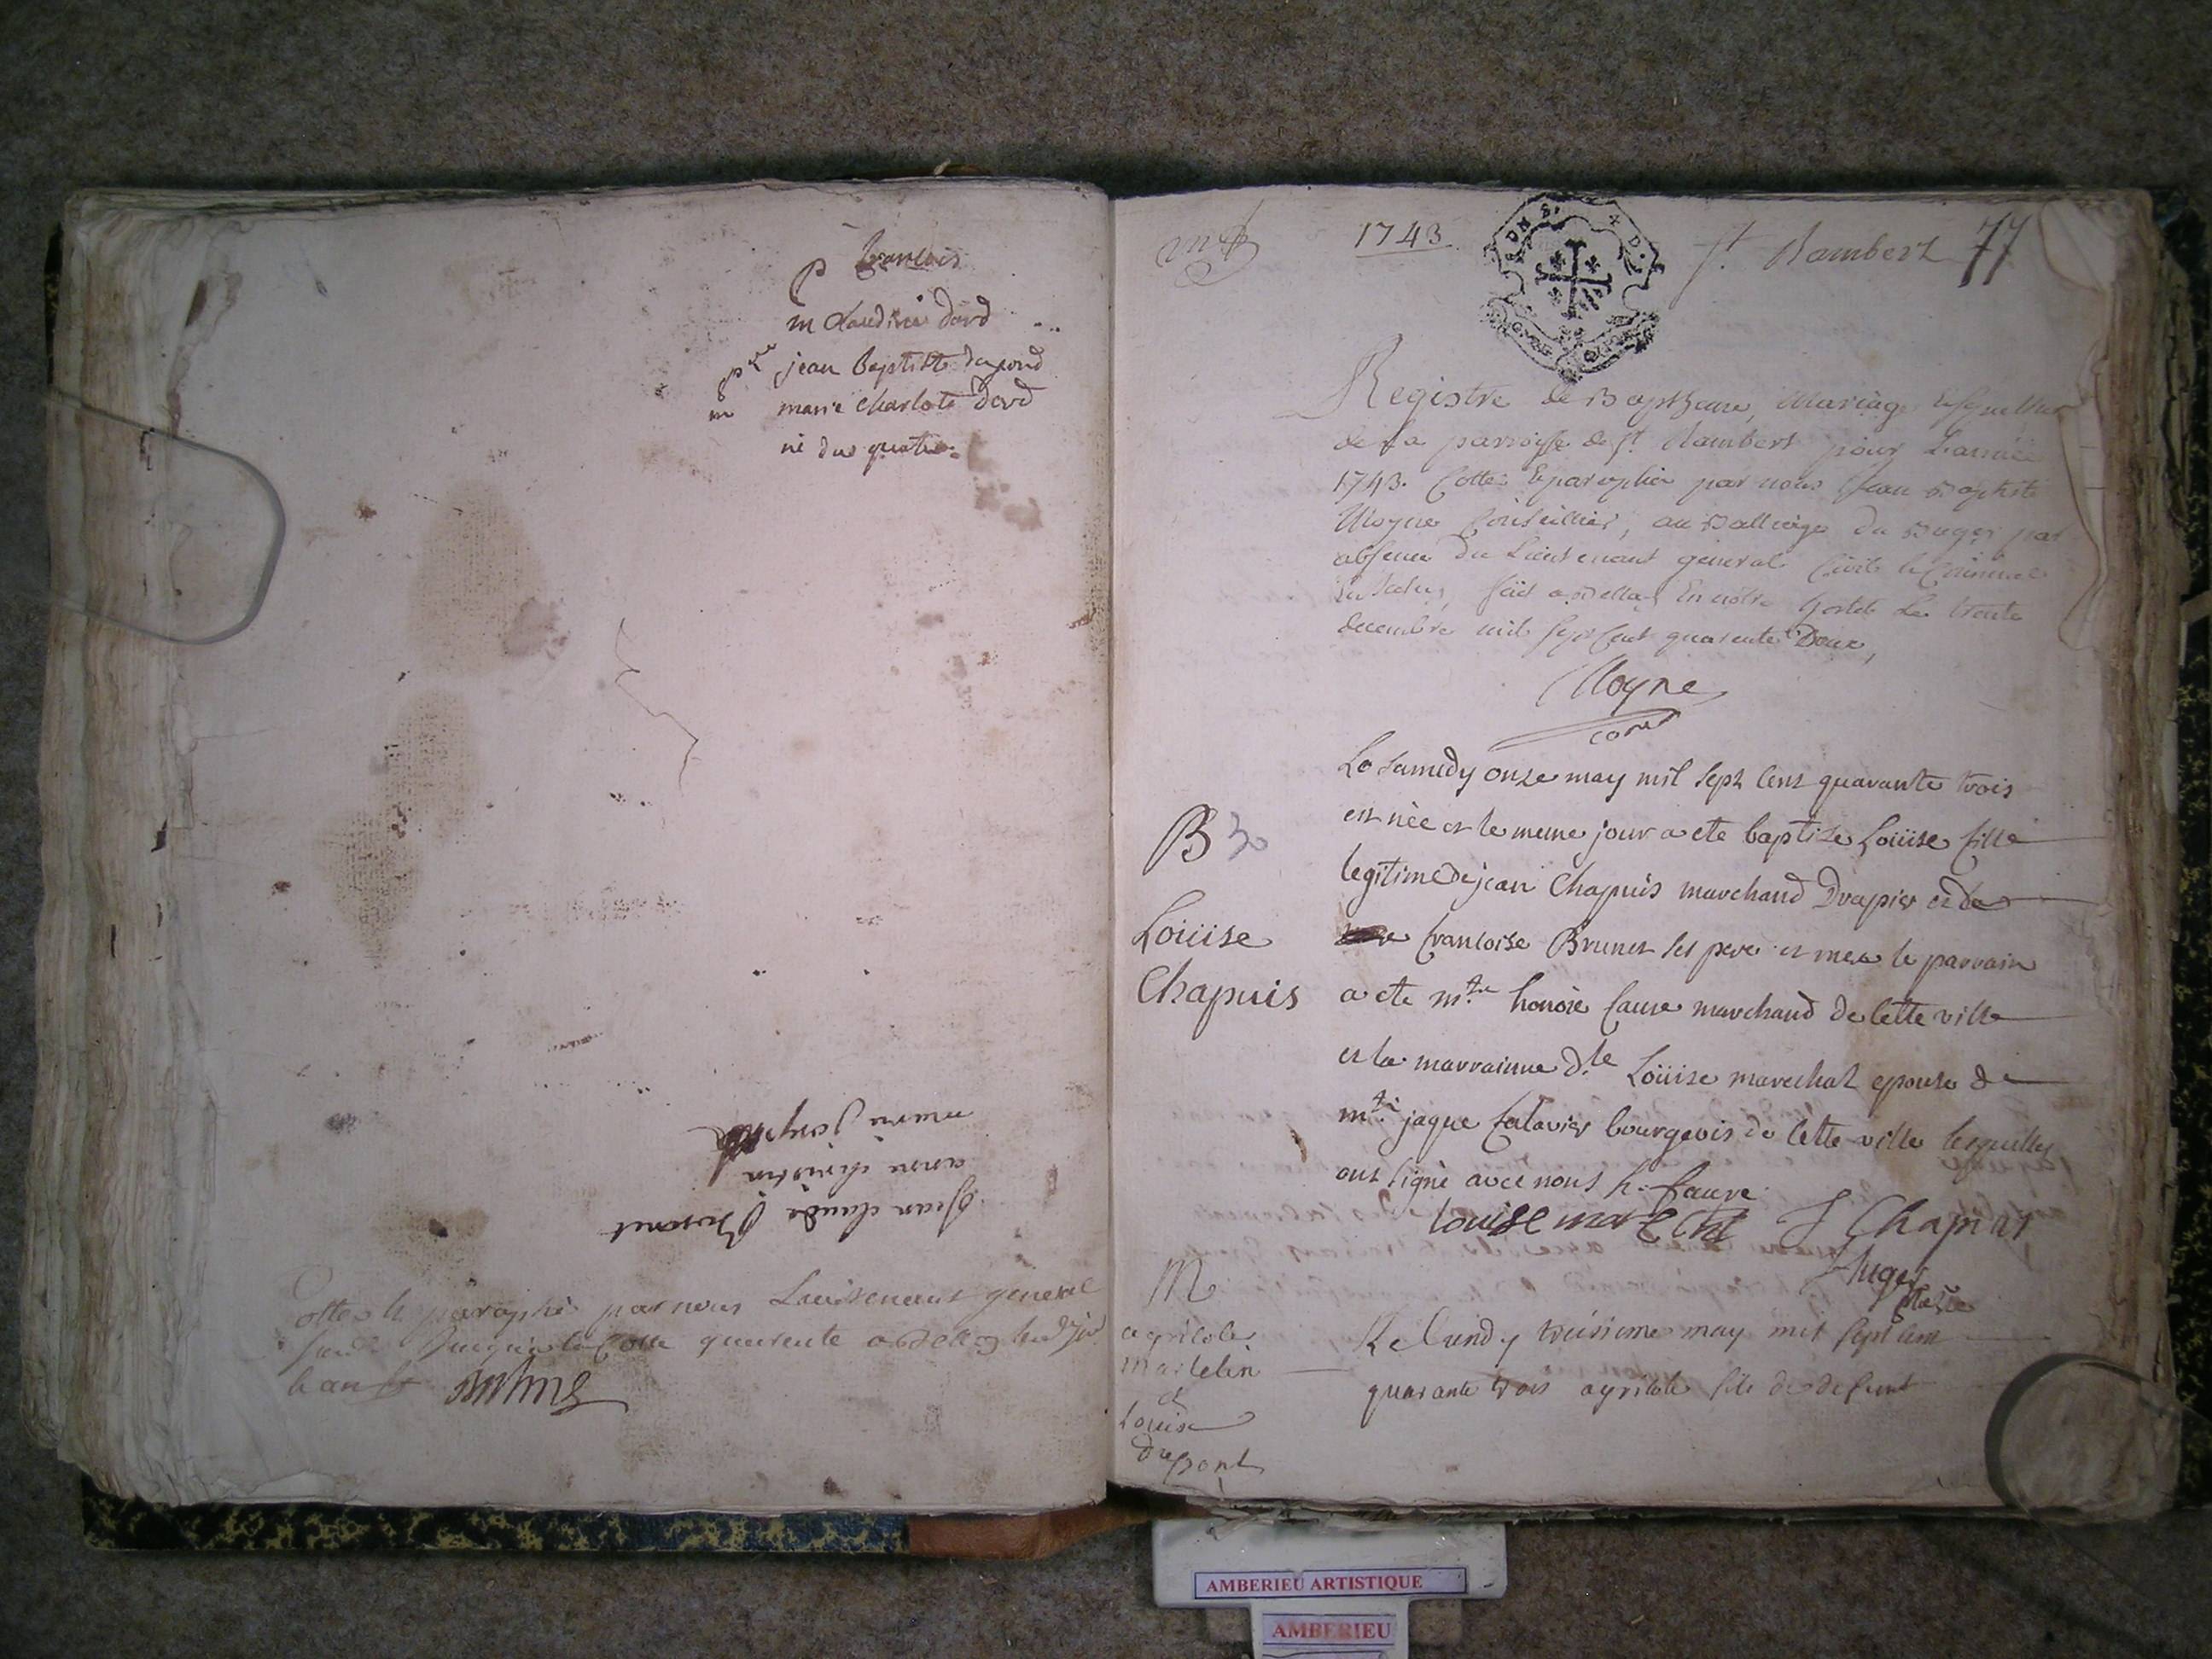 P francois
m Claudine dord ...
jean Baptiste dupond
m marie charlote dord
ne dus quatre
marie joseph
anne christin
Jean claude
Cottee et paraphé par nous Lieutenant general
quarente a Belley
1743
St Rambert 77
Registre de Baptheme, Mariage
de la parroisse de St Rambert pour L'année
1743. Cotté Eparaphée par nous Jean Baptiste
Moyne Conseillier, au Balliage du Bugey par
absence du Lieutenant general Civil et Criminel
fait a Belley En notre hostel Le trente
decembre mil sept Cent quarente Deux,
Moyne
Le samedy onze may mil sept cent quarante trois
est née et le meme jour a ete baptize Loüise fille
legitime de jean Chapuis marchand Drapier et de
francoise Brunet ses pere et mere le parrain
a ete mtre honoré faure marchand de cette ville
et la marrainne dlle Loüise marechal epouse de
mtre jaque Catavier bourgeois de cette ville lesquelles
ont signé avec nous h. faure
B 30
Loüise
Chapuis
Louise marechl J Chapuis
auger
M
agricole
martelin
et
Louise
dupont
Le Lundy troisieme may mil sept cent
quarante trois agricole fils de defunt
AMBERIEU ARTISTIQUE
AMBERIEU